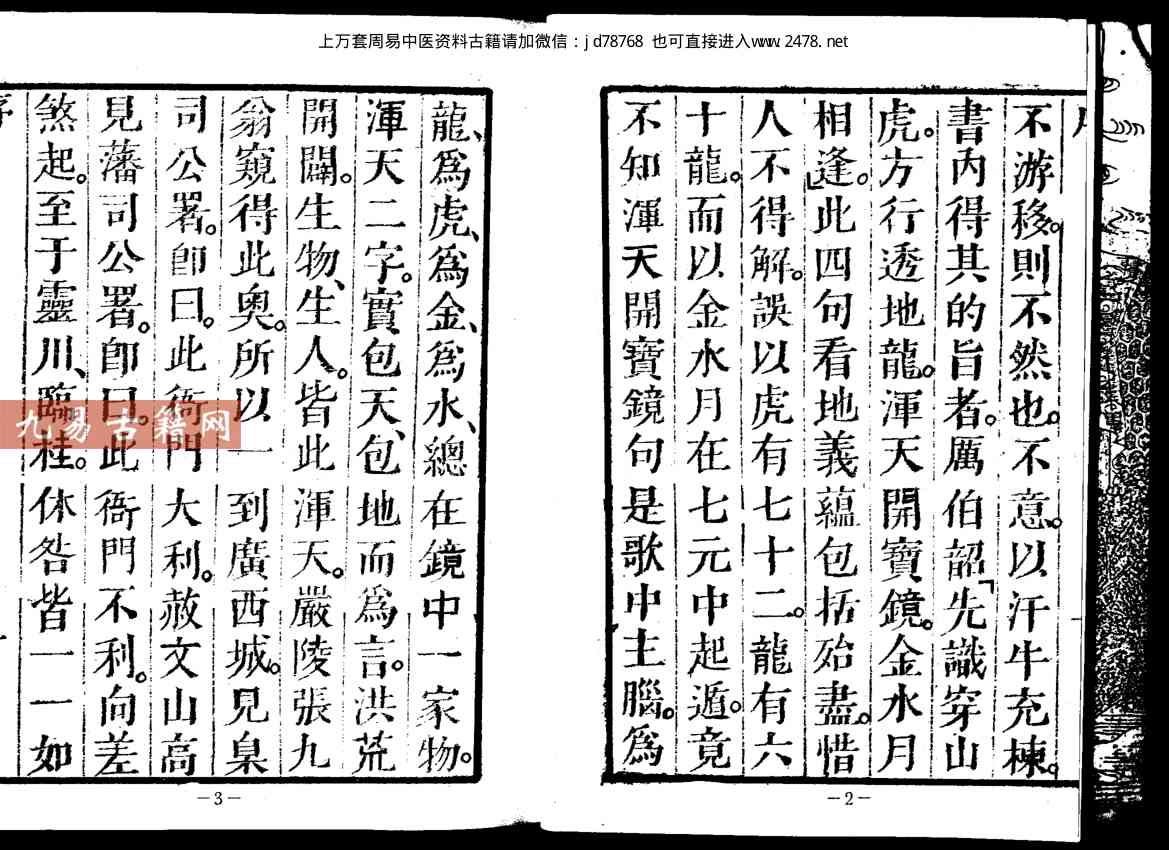 上万套周易中医资料古籍请加微信：jd78768 也可直接进入www.2478.net
不游移。則不然也。不意。以汗牛充棟。
書內得其的旨者。厲伯韶「先識穿山
虎。方行透地龍。渾天開寶鏡。金水月
相逢。」此四句看地義蘊包括殆盡。惜
人不得解。誤以虎有七十二。龍有六
十龍。而以金水月在七元中起遁。竟
不知渾天開寶鏡句是歌中主腦。爲
－2－
龍、爲虎、爲金、爲水、總在鏡中一家物。
渾天二字。實包天、包地而爲言。洪荒
開闢。生物、生人。皆此渾天。嚴陵張九
翁窺得此奥。所以一到廣西城。見臬
司公署。卽曰。此衙門大利。赦文山高
見藩司公署。卽曰。此衙門不利。向差
煞起。至于靈川、臨桂。休咎皆一一如
序
－3－
九易古籍网